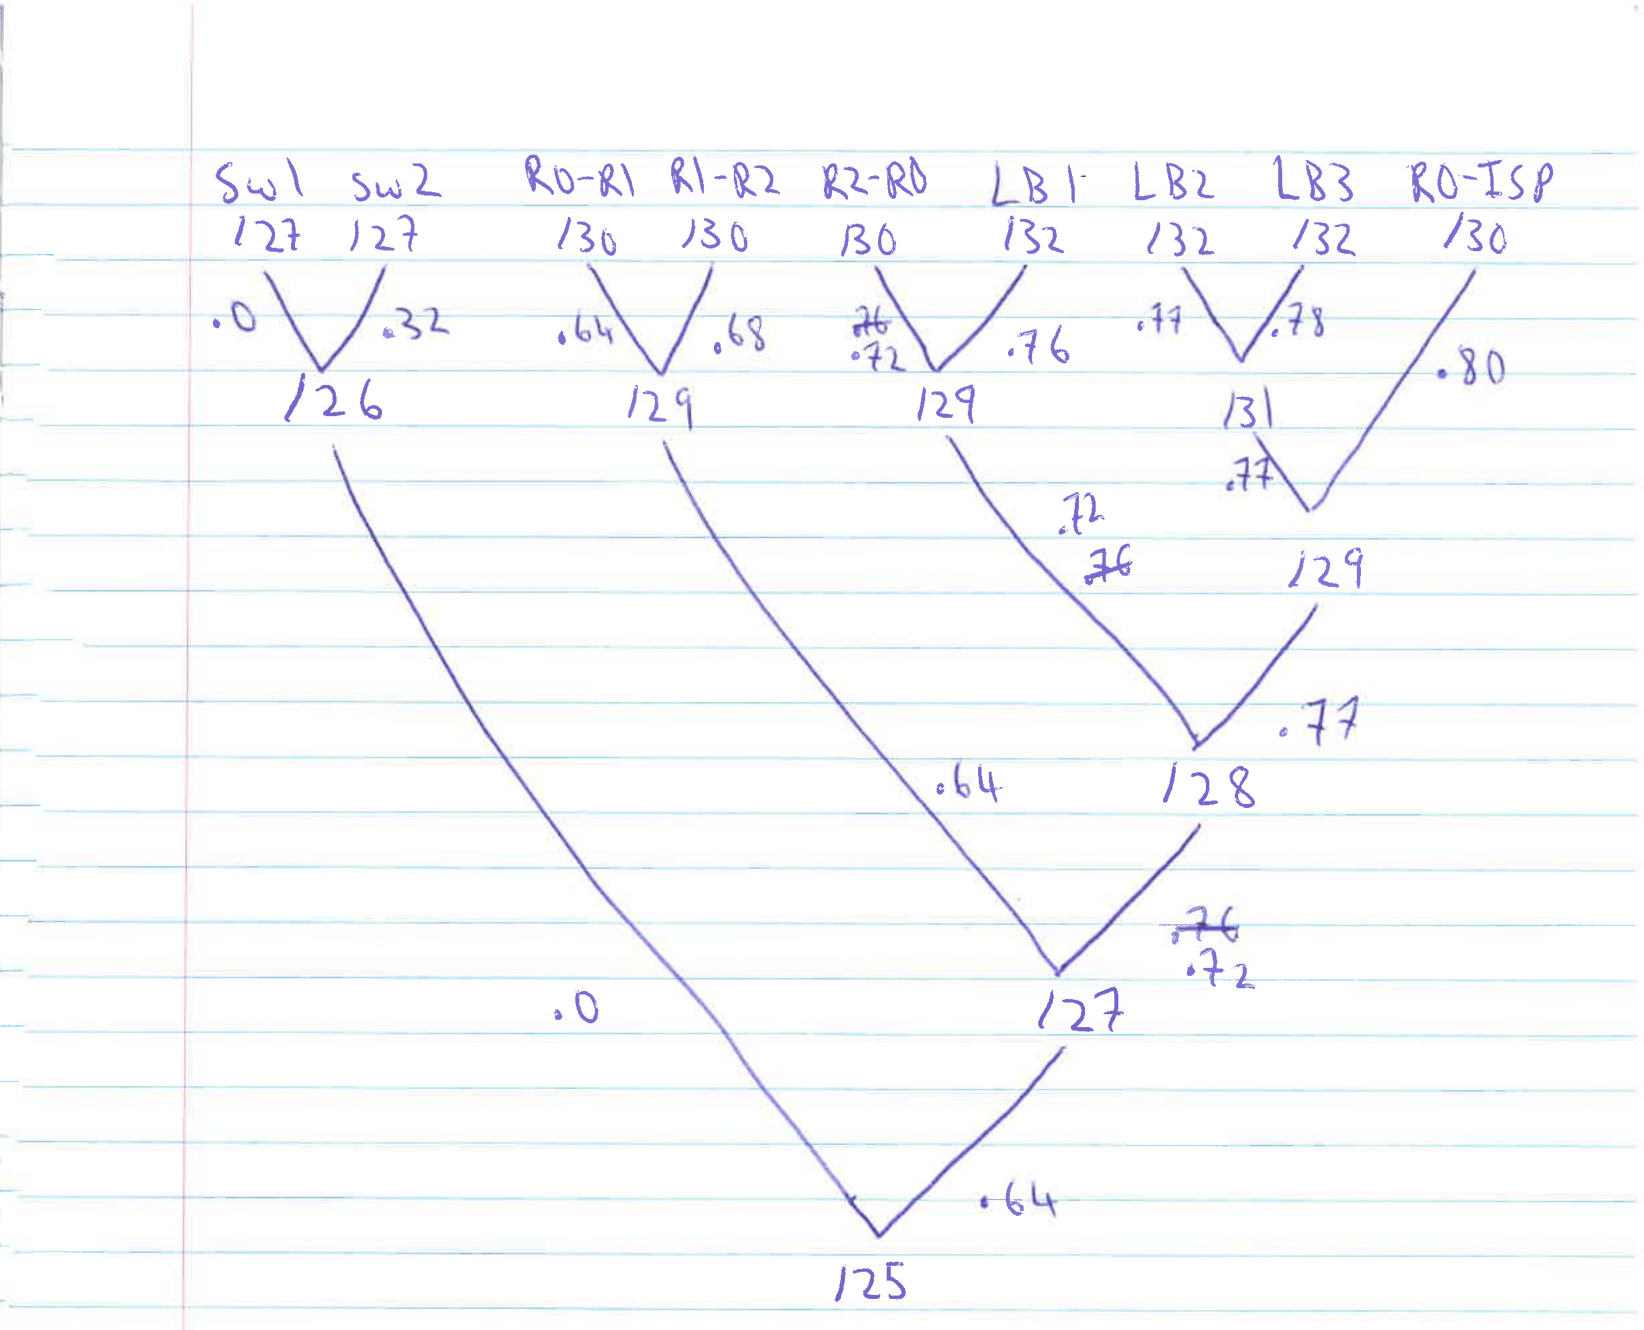 Sw1 Sw2 R0-R1 R1-R2 R2-R0 LB1 LB2 LB3 R0-ISP
/27 /27 /30 /30 /30 /32 /32 /32 /30
.0 .32 .64 .68 .76 .76 .77 .78
.72 .80
/26 /29 /29 /31
.77
.72
.76 /29
.77
.64 /28
.76
.72
.0 /27
.64
/25